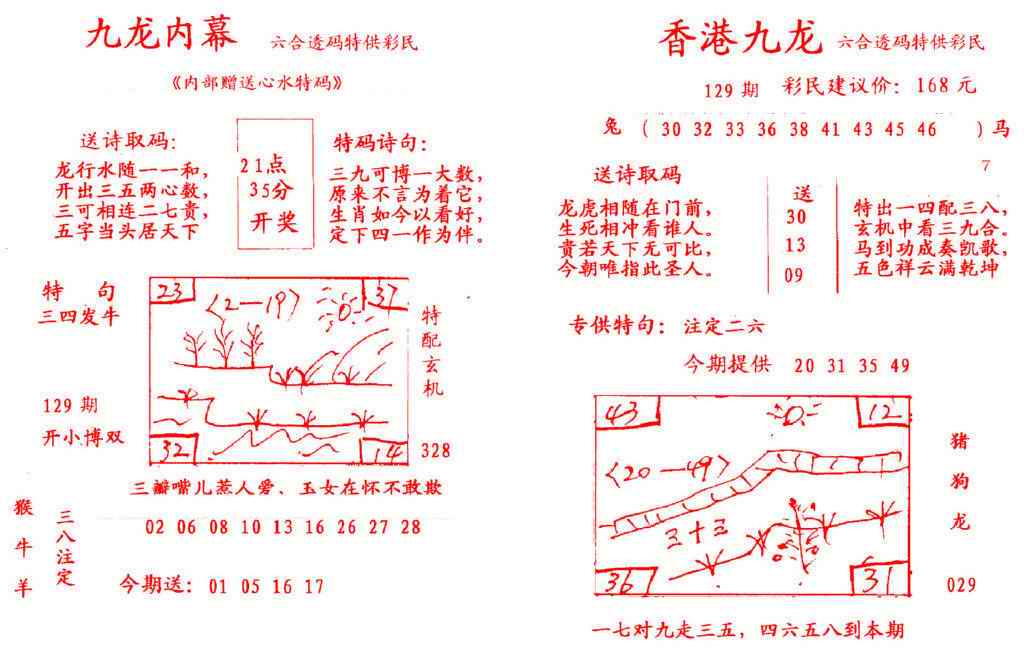 九龙内幕 六合透码特供彩民
《内部赠送心水特码》
送诗取码:
龙行水随一一和,
开出三五两心数,
三可相连二七贵,
五字当头居天下
21点
35分
开奖
特码诗句:
三九可博一大数,
原来不言为着它,
生肖如今以看好,
定下四一作为伴。
特句
三四发牛
129期
开小博双
23
37
〈2—19〉
32
14
特配玄机
328
三瓣嘴儿惹人爱、玉女在怀不敢欺
猴牛羊
三八注定
02 06 08 10 13 16 26 27 28
今期送: 01 05 16 17
香港九龙 六合透码特供彩民
129期 彩民建议价: 168元
兔 ( 30 32 33 36 38 41 43 45 46 ) 马
7
送诗取码
龙虎相随在门前,
生死相冲看谁人。
贵若天下无可比,
今朝唯指此圣人。
送
30
13
09
特出一四配三八,
玄机中看三九合。
马到功成奏凯歌,
五色祥云满乾坤
专供特句: 注定二六
今期提供 20 31 35 49
43
12
〈20—49〉
三十三
36
31
猪狗龙
029
一七对九走三五, 四六五八到本期